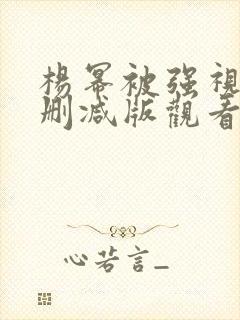 楊冪被强視
刪减版觀看
心若言_